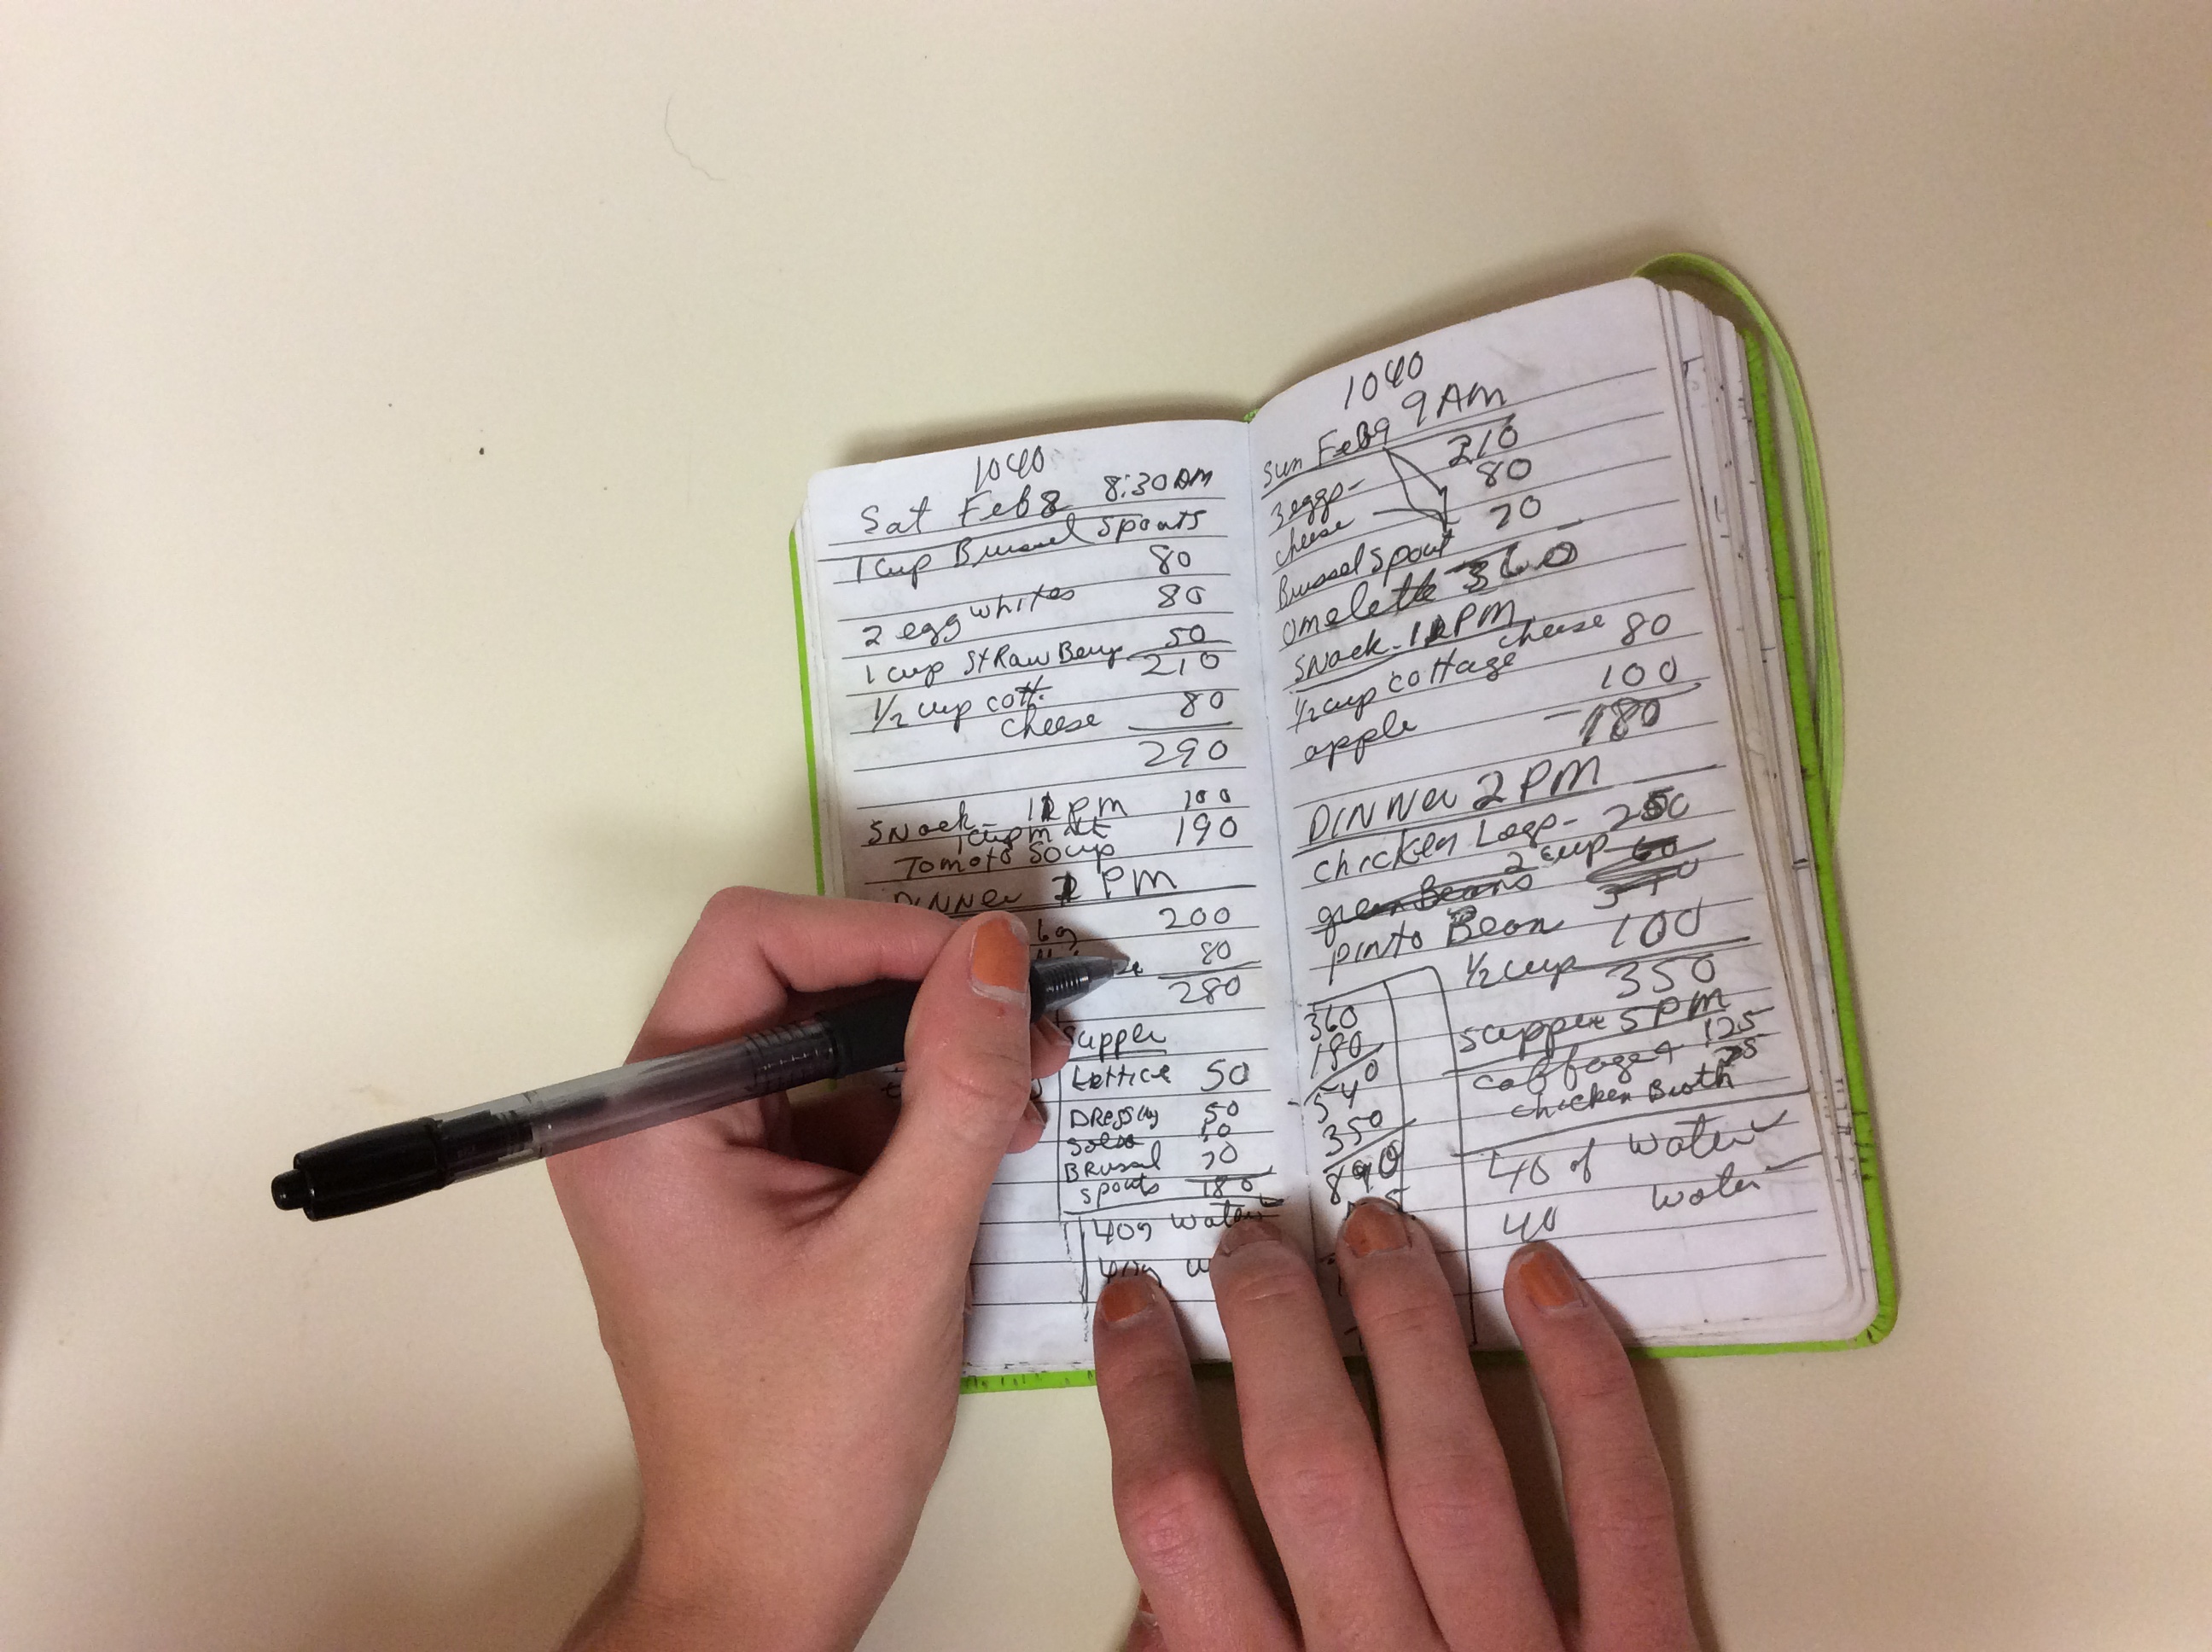 1040
Sat Feb 8 8:30 AM
1 Cup Brussel Spouts
80
2 egg whites 80
1 cup StRawBerry 50
210
1/2 cup cott.
cheese 80
290
SNack - 1 PM 100
1 cup
Tomato Soup 190
DINNer PM
200
80
280
Supper
Lettice 50
DRessing 50
Salsa 10
BRussel 70
spouts 180
40g Water
W
1040
Sun Feb 9 9 AM
3 eggs - 210
cheese 80
Brussel Spout 70
omelette 360
SNack - 1 PM
1/2 cup cottage cheese 80
apple 100
180
DINNer 2 PM
chicken Legs - 250
green Beans 2 cup 60
pinto Bean 100
1/2 cup 350
360
180
540
350
890
Supper 5 PM
cabbage + 125
chicken Broth 25
40 of Water
40 Water